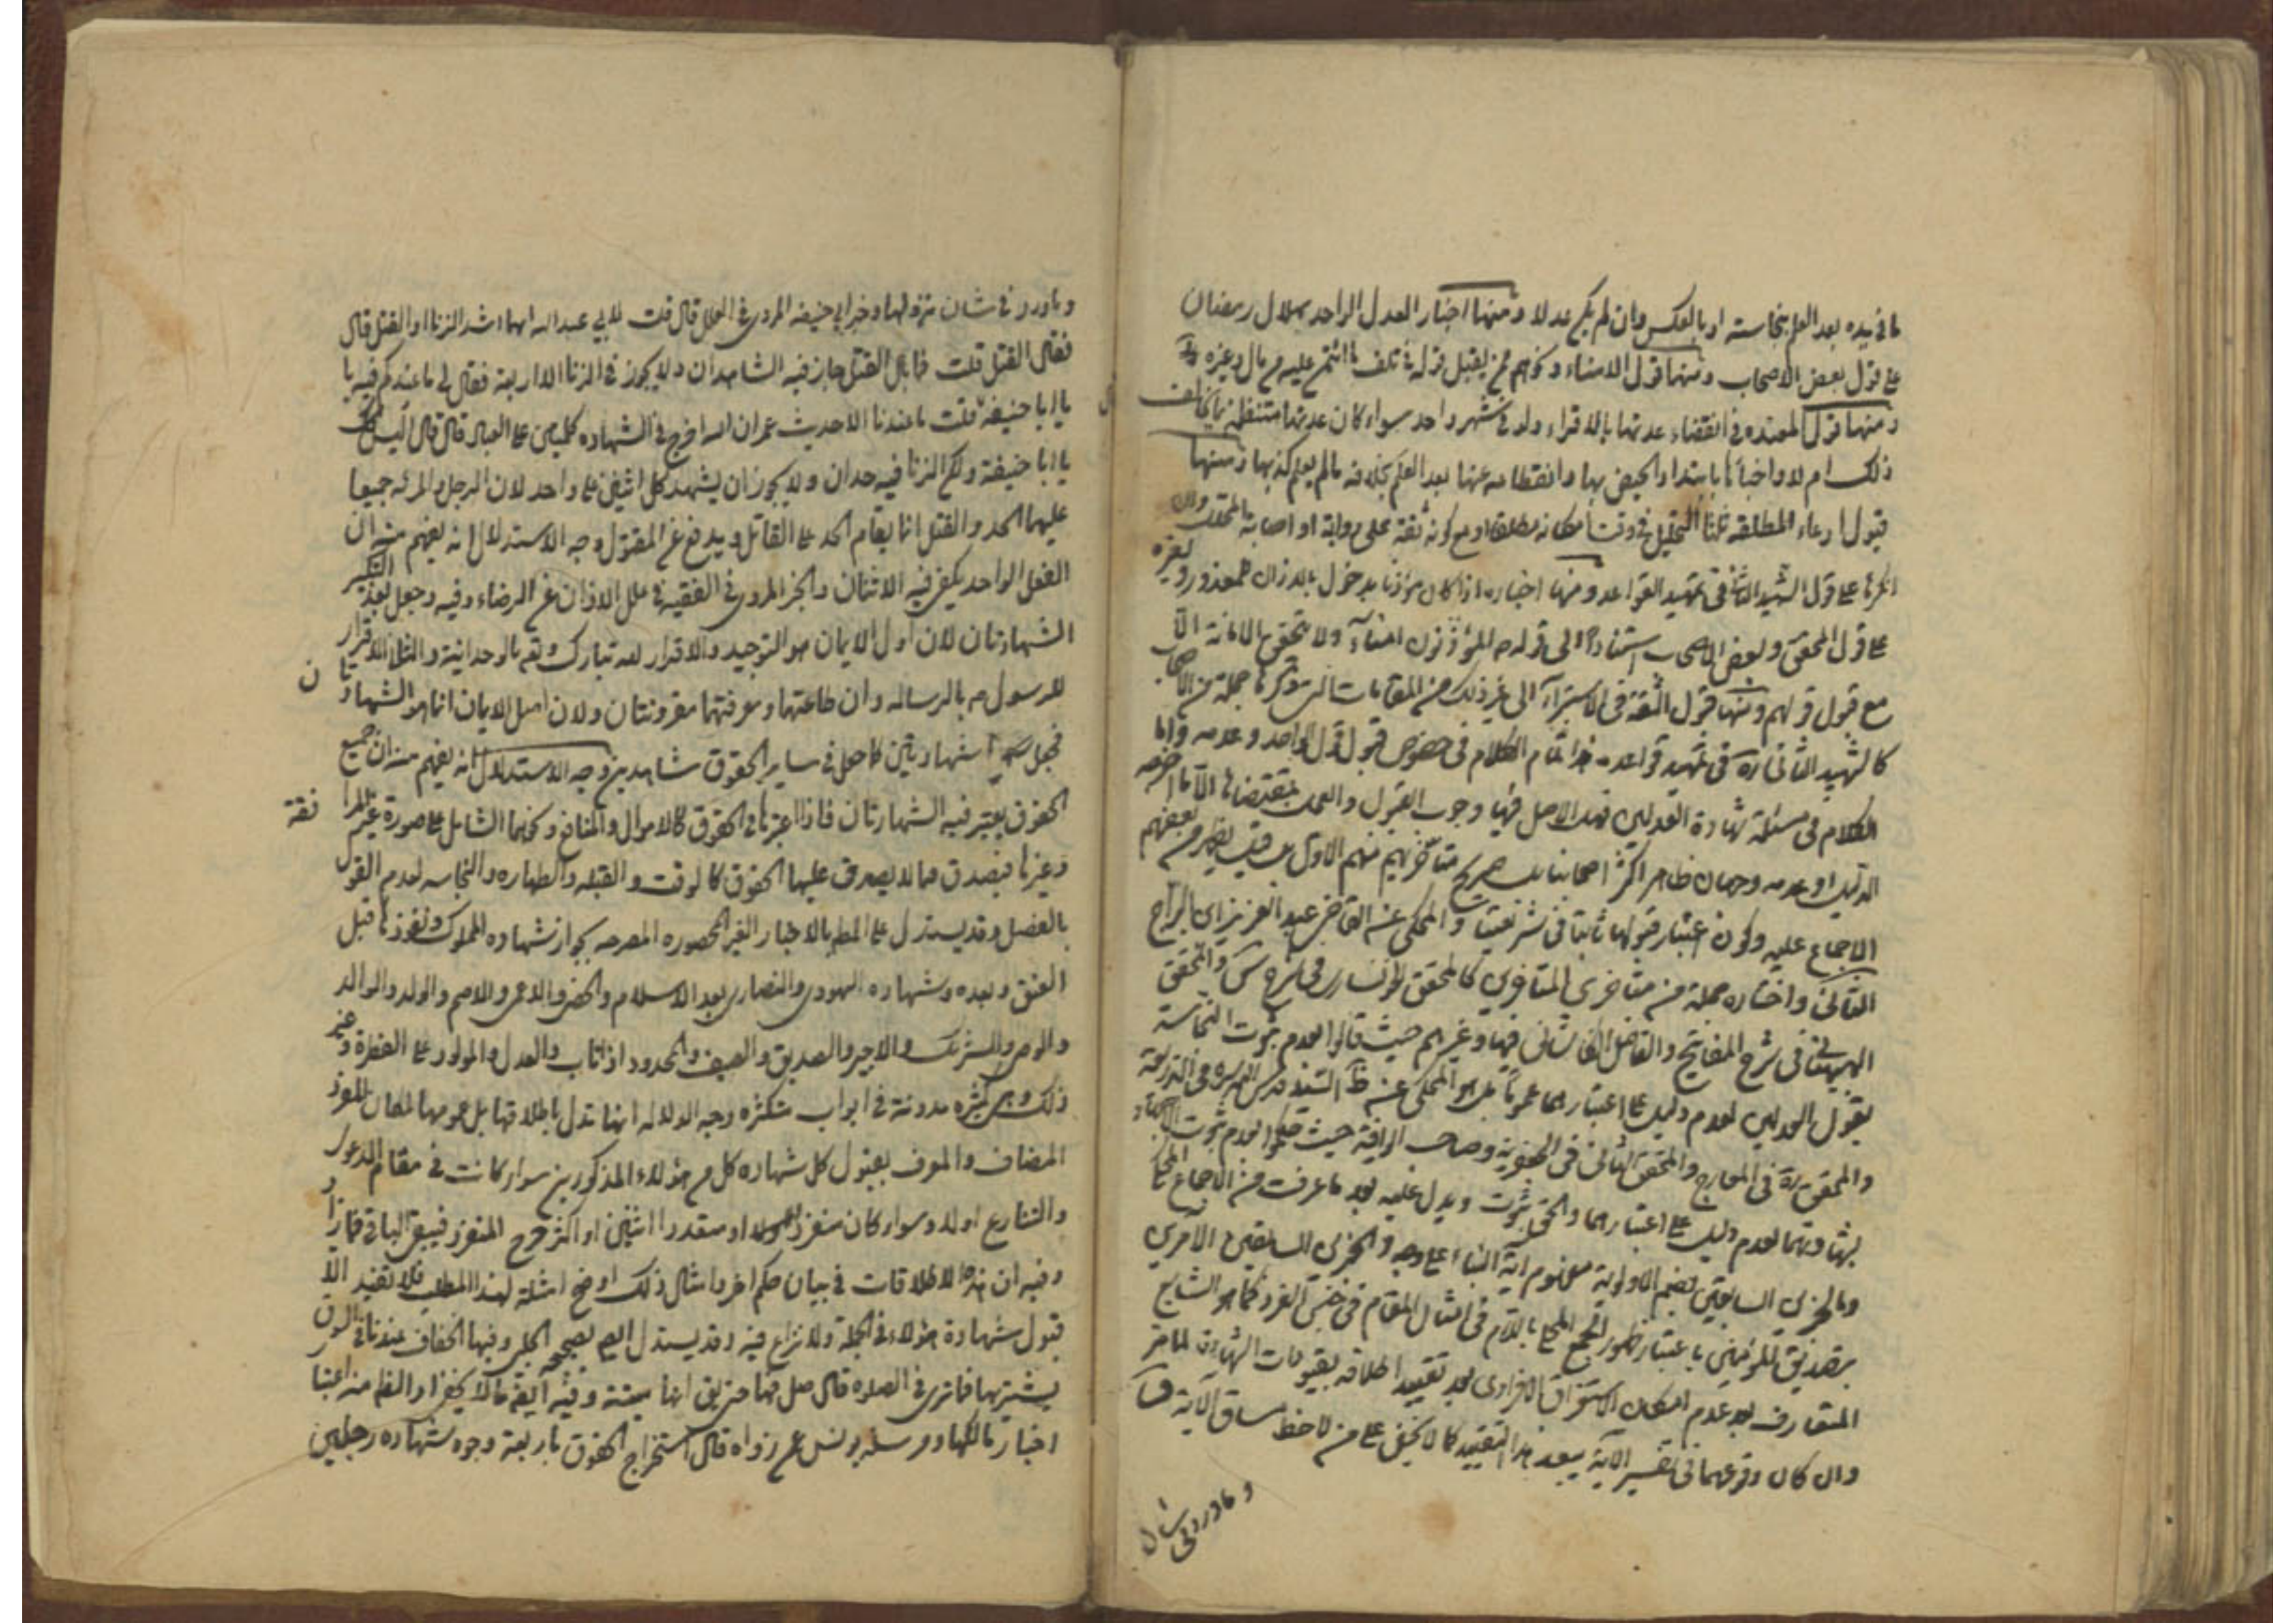 ما في يده بعد العلم بنجاسته او بالعكس وان لم يكن عدلا ومنها اخبار العدل الواحد بهلال رمضان
على قول بعض الاصحاب ومنها قول الامناء ونحوهم ممن يقبل قوله في تلف ما ائتمن عليه من مال وغيره
ومنها قول المعتدة في انقضاء عدتها بالاقراء ولو في شهر واحد سواء كان عدتها منتظمة بما يخالف
ذلك ام لا واخبارها بابتداء الحيض بها وانقطاعه عنها بعد العلم بخلافه ما لم يعلم كذبها ومنها
قبول ادعاء المطلقة ثلثا التحليل في وقت امكانه مطلقا او مع كونه ثقة على رواية او اصابة المحلل وان
انكرها على قول الشهيد الثاني في تمهيد القواعد ومنها اخباره اذا كان مؤذنا بدخول بالاذان للمعذور ولغيره
على قول المحقق وبعض الاصحاب استنادا الى قوله ص المؤذنون امناء ولا يتحقق الامانة الا
مع قبول قولهم ومنها قبول الثقة في الاستبراء الى غير ذلك من المقامات التي ذكرها جملة من الاصحاب
كالشهيد الثاني ره في تمهيد قواعده هذا تمام الكلام في خصوص قبول قول الواحد وعدمه واما
الكلام في مسئلة شهادة العدلين فهل الاصل فيها وجوب القبول والعمل بمقتضاها الا ما اخرجه
الدليل او عدمه وجهان ظاهر اكثر اصحابنا بل صريح متأخريهم منهم الاول بل قيل يظهر من بعضهم
الاجماع عليه وكون اعتبار قبولها ثابتا في شريعتنا والمحكي عن القاضي عبد العزيز ابن البراج
الثاني واختاره جملة من متأخري المتأخرين كالمحقق الخونساري في شرح س والمحقق
البهبهاني في شرح المفاتيح والفاضل الكاشاني فيها وغيرهم حيث قالوا بعدم ثبوت النجاسة
بقول العدلين لعدم دليل على اعتبارهما عموما بل هو المحكي عن ظ السيد قدس سره في الذريعة
والمحقق ره في المعارج والمحقق الثاني في الجعفرية وصاحب الوافية حيث حكموا بعدم ثبوت الاجتهاد
بشهادتهما لعدم دليل على اعتبارهما والحق الثبوت ويدل عليه بعد ما عرفت من الاجماع المحكي
وبالخبرين السابقين بضم الاولوية مفهوم اية النباء على وجه والخبرين السابقين الآمرين
بتصديق المؤمنين باعتبار ظهور الجمع المحلى باللام في امثال المقام في جنس الفرد كما هو الشايع
المتعارف بعد عدم امكان الاستغراق الافرادي بعد تقييد اطلاقه بقيودات الشهادة لما مر
وان كان وقوعهما في تفسير الآية يبعد هذا التقييد كما لا يخفى على من لاحظ مساق الآية
وما ورد في شان
وما ورد في شان نزولها وخبر ابي حنيفة المروي في العلل قال قلت لابي عبد الله ايهما اشد الزنا او القتل قال
فقال القتل قلت فما بال القتل جاز فيه الشاهدان ولا يجوز في الزنا الا اربعة فقال لي ما عندكم فيه يا
يا ابا حنيفة قلت ما عندنا الا حديث عمر ان الله اخرج في الشهادة كلمتين على العباد قال قال ليس كذلك
يا ابا حنيفة ولكن الزنا فيه حدان ولا يجوز ان يشهد كل اثنين على واحد لان الرجل والمرئة جميعا
عليهما الحد والقتل انما يقام الحد على القاتل ويدفع عن المقتول وجه الاستدلال انه يفهم منه ان
الفعل الواحد يكفي فيه الاثنان والخبر المروي في الفقيه في علل الاذان عن الرضا وفيه وجعل بعد التكبير
الشهادتان لان اول الايمان هو التوحيد والاقرار لله تبارك وتعالى بالوحدانية والثاني الاقرار
للرسول ص بالرسالة وان طاعتهما ومعرفتهما مقرونتان ولان اصل الايمان انما هو الشهادتان
فجعل شهادتين شهادتين كما جعل في ساير الحقوق شاهدين وجه الاستدلال انه يفهم منه ان جميع
الحقوق يعتبر فيه الشهادتان فاذا اعتبرنا في الحقوق كالاموال والمنافع ونحوهما الشامل على صورة
وغيرها فبصدق مما لا يصدق عليها الحقوق كالوقت والقبلة والطهارة والنجاسة لعدم القول
بالفصل وقد يستدل على المطلب بالاخبار الغير المحصورة المصرحة بجواز شهادة المملوك ونفوذها قبل
العتق وبعده وشهادة اليهودي والنصارى بعد الاسلام والخصي والاعمى والاصم والولد والوالد
والوصي والشريك والاجير والصديق والضيف والمحدود اذا تاب والعدل والمولود على الفطرة وغير
ذلك وهي كثيرة مدونة في ابواب متكثرة وجه الدلالة انها تدل باطلاقها بل عمومها لمكان المفرد
المضاف والمعرف بقبول كل شهادة كل من هؤلاء المذكورين سواء كانت في مقام الدعوى
والتنازع اولا وسواء كان منفردا او متعددا اثنين او اكثر خرج المنفرد فيبقى الباقي
وفيه ان هذه الاطلاقات في بيان حكم اخر وامثال ذلك اوضح امثلة لهذا المطلب فلا تفيد الا
قبول شهادة هؤلاء في الجملة ولا نزاع فيه وقد يستدل ايضا بصحيحة الحلبي وفيها الخفاف عندنا في السوق
نشتريها فما ترى في الصلاة قال صل فيها حتى يق انها ميتة وفيه ايضا ما لا يخفى اذ الظاهر منه اعتبار
اخبار مالكها ومرسلة يونس عمن رواه قال استخراج الحقوق باربعة وجوه شهادة رجلين